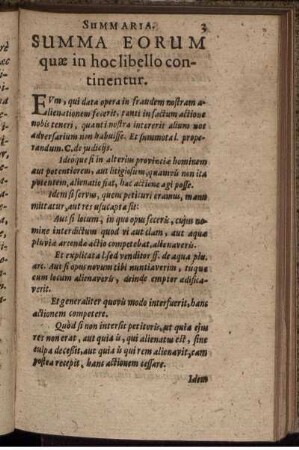 SUMMARIA. 3
SUMMA EORUM
quæ in hoc libello con-
tinentur.
EVm, qui data opera in fraudem nostram a-
lienationem fecerit, tanti in factum actione
nobis teneri, quanti nostra intererit alium nos
adversarium non habuisse. Et summatá l. prope-
randum. C. de judicijs.
Ideoque si in alterius provinciæ hominem
aut potentiorem, aut litigiosum, quamvis non ita
potentem, alienatio fiat, hac actione agi posse.
Idem si servus, quem petituri eramus, manu-
mittatur, aut res usucapta sit:
Aut si locum, in quo opus fecerit, cujus no-
mine interdictum quod vi aut clam, aut aquæ
pluviæ arcendæ actio competebat, alienaverit.
Et explicata l. sed venditor ff. de aqua plu.
arc. Aut si opus novum tibi nuntiaverim, tuque
eum locum alienaveris, deinde emptor ædifica-
verit.
Et generaliter quovis modo interfuerit, hanc
actionem competere.
Quòd si non intersit petitoris, ut quia ejus
res non erat, aut quia is, qui alienatus est, sine
culpa decessit, aut quia is qui rem alienavit, eam
postea recepit, hanc actionem cessare.
Idem